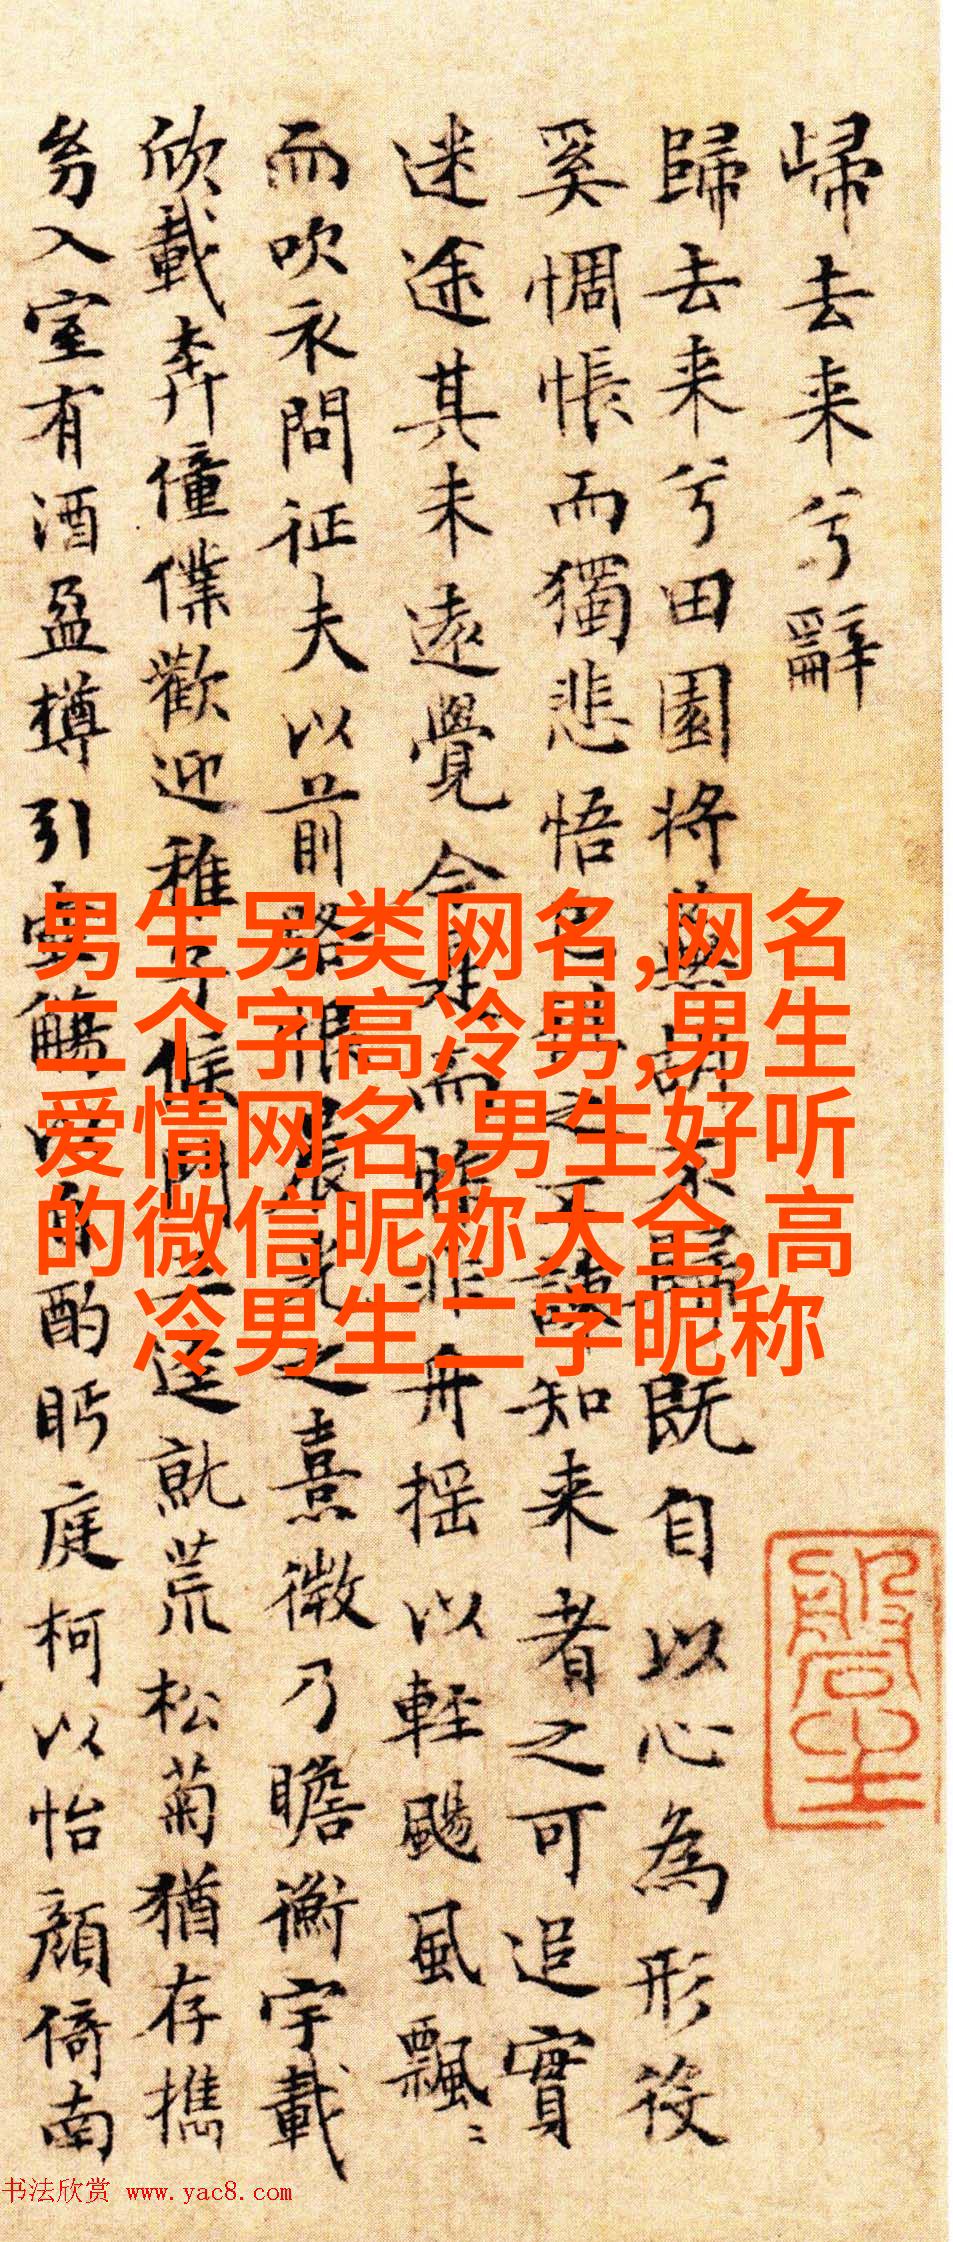 歸去来兮辭
歸去来兮田園将蕪胡不歸既自以心為形役
奚惆悵而獨悲悟已往之不諫知来者之可追實
迷途其未遠覺今是而昨非舟揺以輕颺風飄〻
而吹衣問征夫以前路恨晨光之熹微乃瞻衡宇載
欣載奔僮僕歡迎稚子候門三逕就荒松菊猶存攜
幼入室有酒盈樽引壺觴以自酌眄庭柯以怡顏倚南
男生另类网名,网名
二个字高冷男,男生
爱情网名,男生好听
的微信昵称大全,高
冷男生二字昵称
书法欣赏 www.yac8.com